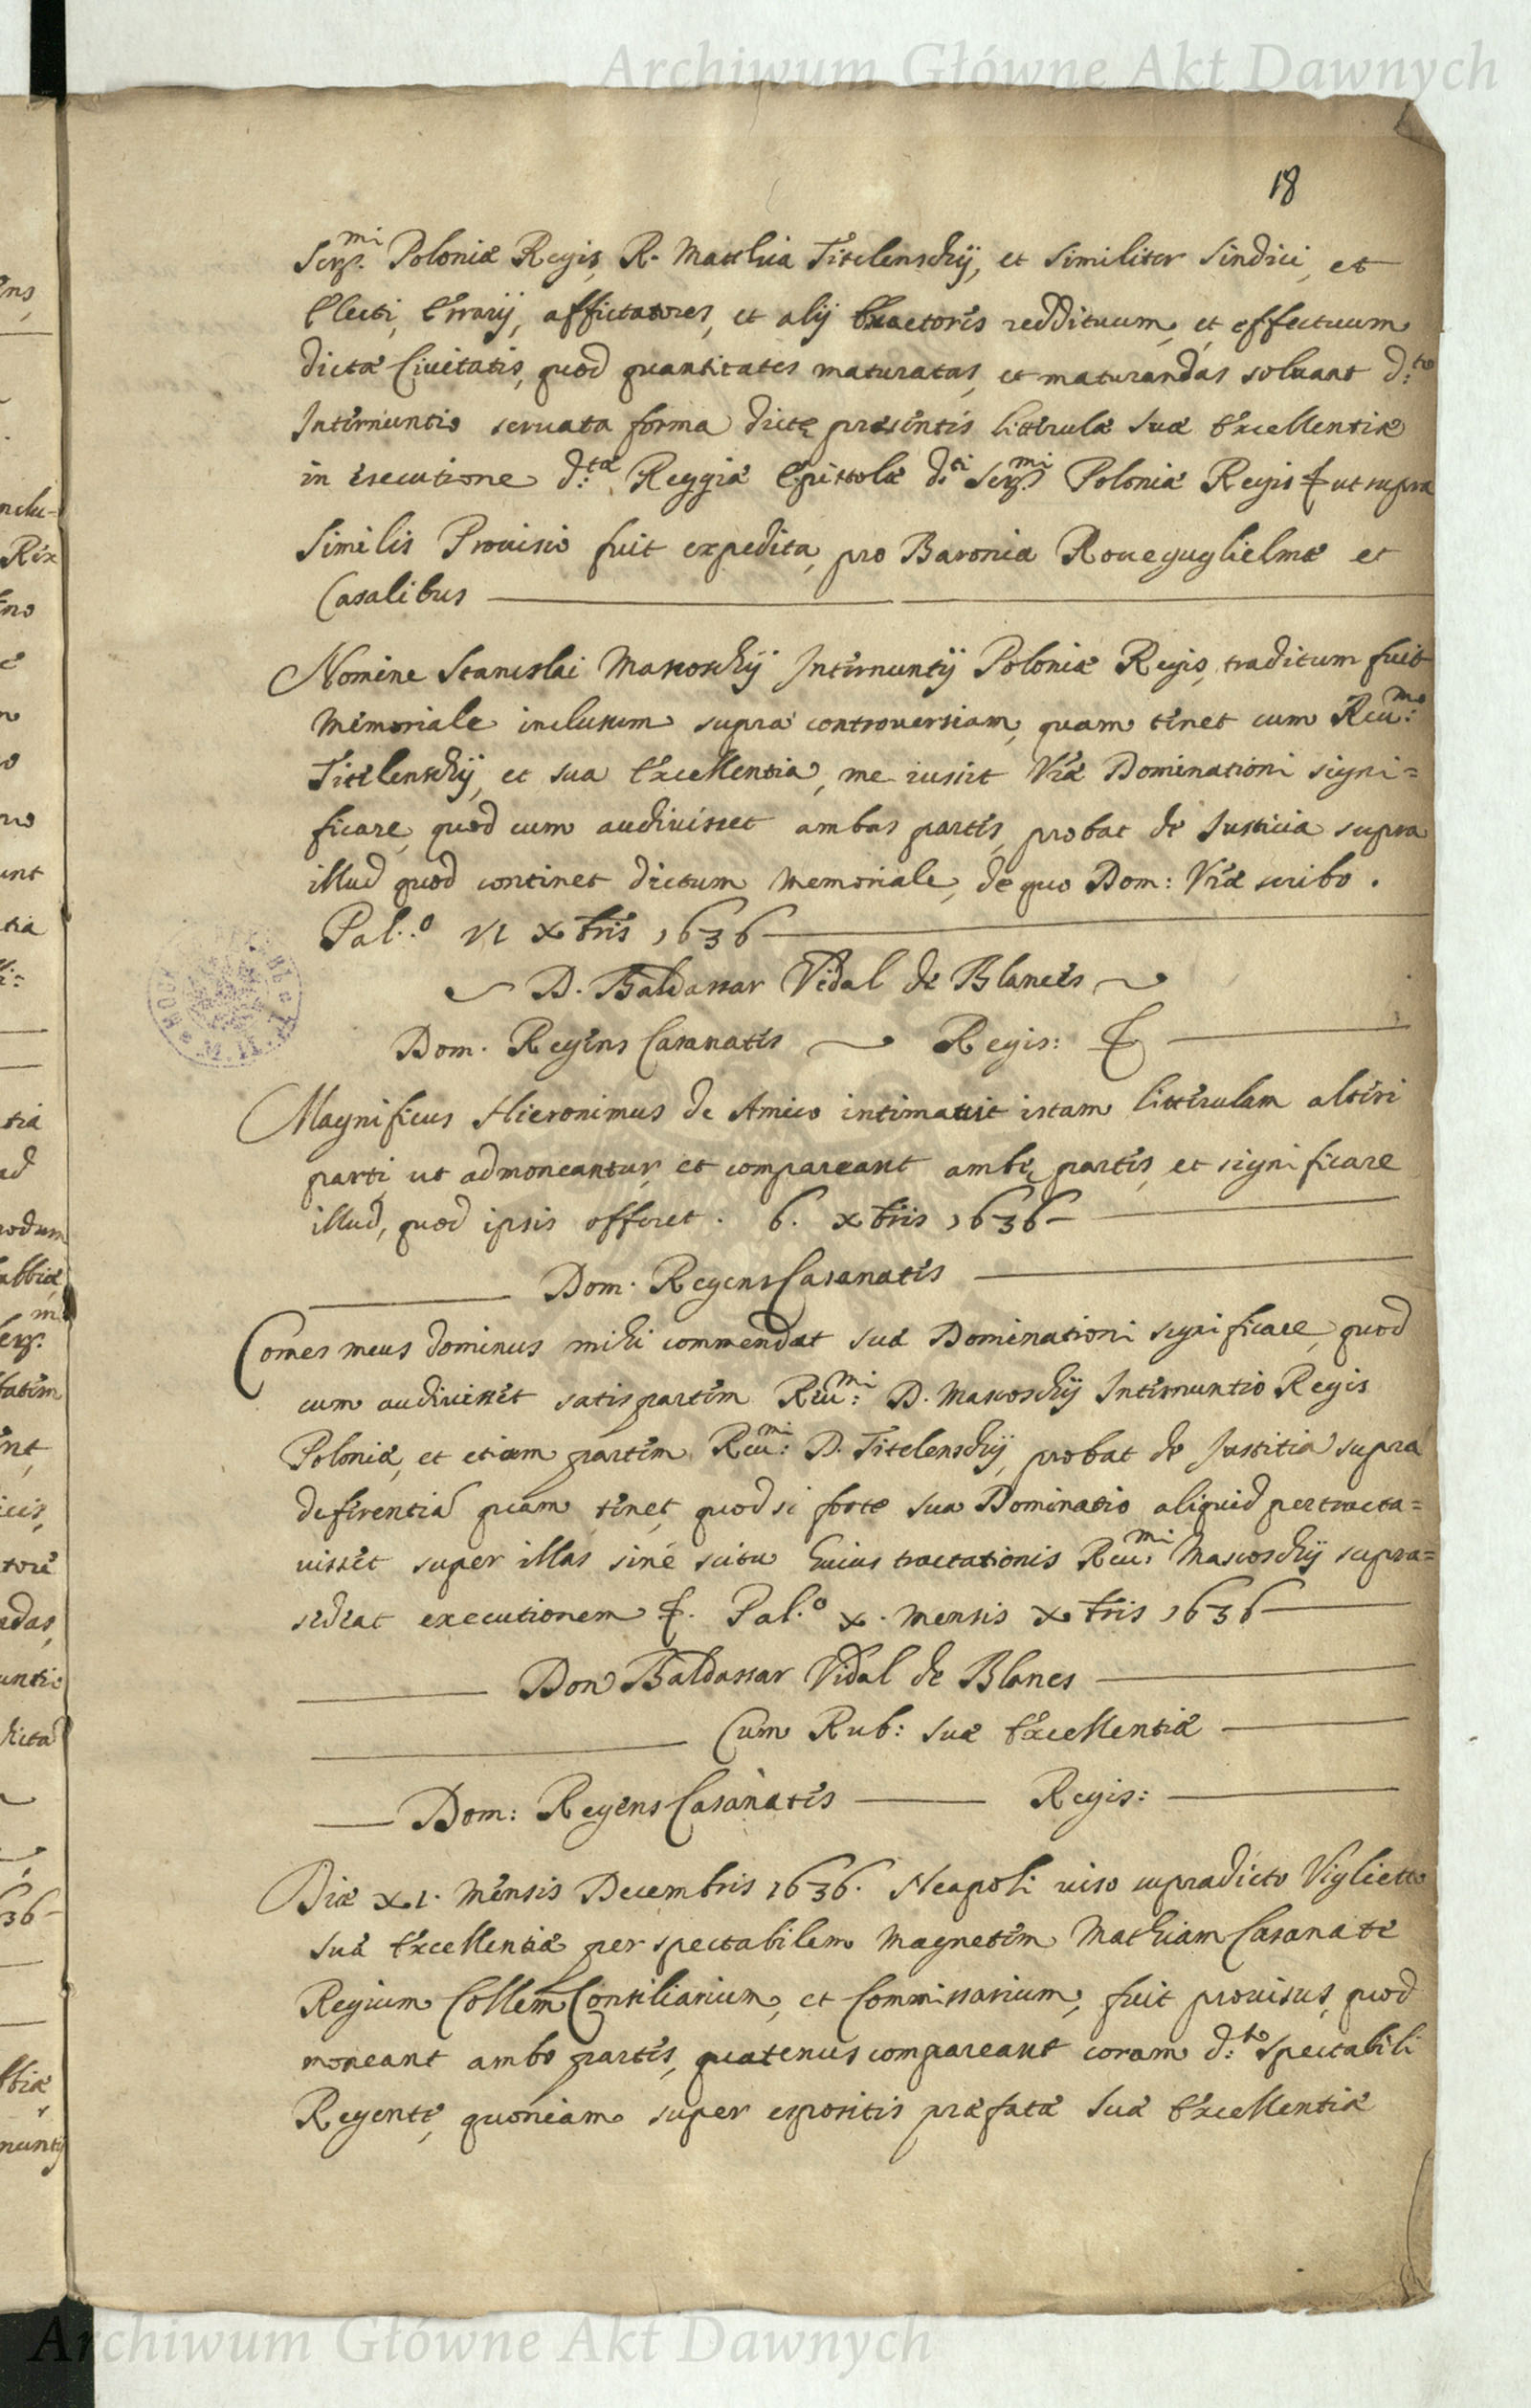 Archiwum Główne Akt Dawnych
18
Ser.mi Poloniæ Regis, R. Matthia Titelenschij, et similiter Sindici, et
Electi, Errarij, affictatores, et alij Exactores reddituum, et effectuum
dictæ Civitatis, quod quantitates maturatas, et maturandas soluant d.to
Internuntio seruata forma dictę præsentis litterulæ suæ Excellentiæ
in esecutione d.tæ Reggiæ Epistolæ d.ti Ser.mi Poloniæ Regis & ut supra
Similis Prouisio fuit expedita, pro Baronia Roueguglielmæ et
Casalibus
Nomine Stanislai Makoschij Internuntij Poloniæ Regis, traditum fuit
memoriale inclusum supra controuersiam, quam tenet cum Reu.mo
Titelenschij, et sua Excellentia, me iussit Vræ Dominationi signi=
ficare, quod cum audiuisset ambas partes, probat de Justicia supra
illud quod continet dictum memoriale, de quo Dom: Vræ scribo.
Pal.o VI xbris 1636
D. Baldassar Vidal de Blances
Dom. Regens Casanatis Regis: &
Magnificus Hieronimus de Amico intimauit istam litterulam alteri
parti ut admoneantur, et compareant ambę partes, et significare
illud, quod ipsis offeret. 6. xbris 1636
Dom. Regens Casanatis
Comes meus dominus mihi commendat suæ Dominationi significare, quod
cum audiuisset satis partem Reu.mi D. Mascoschij Internuntio Regis
Poloniæ, et etiam partem Reu.mi D. Titelenschij, probat de Justitia supra
deferentiâ quam tenet, quod si forte sua Dominatio aliquid pertracta=
uisset super illas sine scitu huius tractationis Reu.mi Mascoschij supra=
sedeat executionem &. Pal.o x. mensis xbris 1636
Don Baldassar Vidal de Blanes
Cum Rub: suæ Excellentiæ
Dom: Regens Casanatis Regis:
Diæ XI. mensis Decembris 1636. Neapoli uiso supradicto Viglietto
suæ Excellentiæ per spectabilem magnetem Mathiam Casanate
Regium Collem Consiliarium, et Commissarium, fuit prouisus, quod
moneant ambo partes, quatenus compareant coram d.to spectabili
Regente, quoniam super espositis præfatæ suæ Excellentiæ
Archiwum Główne Akt Dawnych